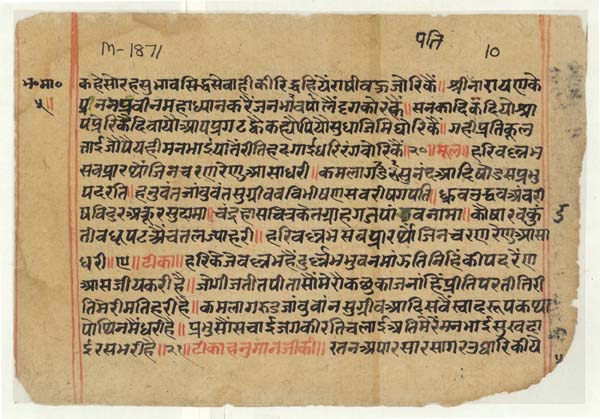 M-1871
पति
10
भ॰मा॰
५
कहैसोरहसुभावसिद्धसेवाहीकीरिद्धहियेराषीवऊजोरिकैं॥ श्रीनारायणके
नमप्रवीनमहाध्यानकरैजनभांवपोलैंदृगकोरकूं॥ सनकादिकदियोश्रा
पप्रेरिकैंदिवायोआपप्रगटह्वैकह्योपियोसुधाजिमिघोरिकैं॥ गहीप्रतिकूल
ताईजोपैयहीमनभाईयातैंरीतिहदगाईधरिरंगवोरिकैं॥२०॥मूल॥ हरिवल्लभ
सवप्रारथौंजिनचरणरेणुआसाधरी॥ कमलागरुडसुनंदआदिषोडसप्रभु
पदरति॥ हनुवंतजांबुवंतसुग्रीवबिभीषणसवरीषगपति॥ ध्रुवउद्धवअंवरी
षविदुरअक्रूरसुदामा॥ चंद्रहासचित्रकेतग्राहगजपांडवनामा॥ कौषारवकुं
तीवधूपटऐंचतलज्याहरी॥ हरिवल्लभसबप्रारथौंजिनचरणरेणुआसा
धरी॥९॥टीका॥ हरिकेजेवल्लभहैदुर्लभभुवनमांऊतिनिहिंकीपदरेण
आसजीयकरीहै॥ जोगीजतीतपीतासोंमेरोकछुकाजनांहिंप्रीतिपरतीतिरी
तिमेरीमतिहरीहै॥ कमलागरुडजांबुवांनसुग्रीवआदिसवैस्वादरूपकथा
पोथिनमेंधरीहै॥ प्रभुसोंसचाईजगकीरतिचलाईअतिमेरेमनभाईसुखदा
ईरसभरीहै॥२१॥टीकाहनुमानजीकी॥ रतनअपारसारसागरउधारिकीये
५